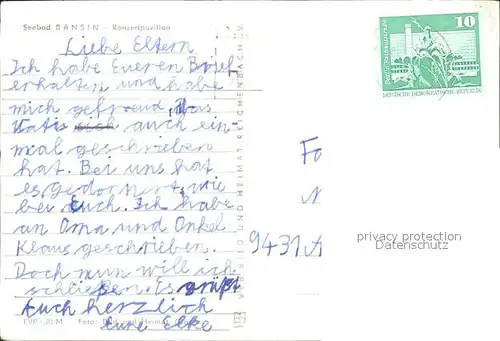 Seebad BANSIN – Konzertpavillon
Liebe Eltern
Ich habe Eueren Brief
erhalten und habe
mich gefreud das
Vati auch ein-
mal geschrieben
hat. Bei uns hat
es gedornert, wie
bei Euch. Ich habe
an Oma und Onkel
Klaus geschrieben.
Doch nun will ich
schließen. Es grüßt
Euch herzlich
Eure Elke
EVP -,20 M Foto: Bild und Heimat
BILD UND HEIMAT REICHENBACH V
10
DEUTSCHE DEMOKRATISCHE REPUBLIK
Fo
N
9431 A
privacy protection
Datenschutz